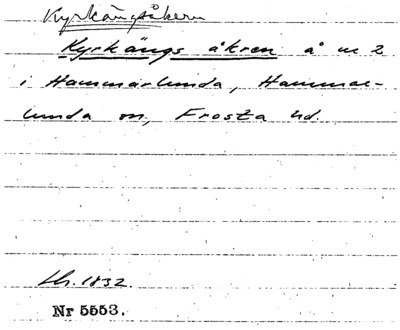 Kyrkängsåkern
Kyrkängs åkren å n 2
i Hammarlunda, Hammar-
lunda sn, Frosta hd.
Lh. 1832.
Nr 5553.